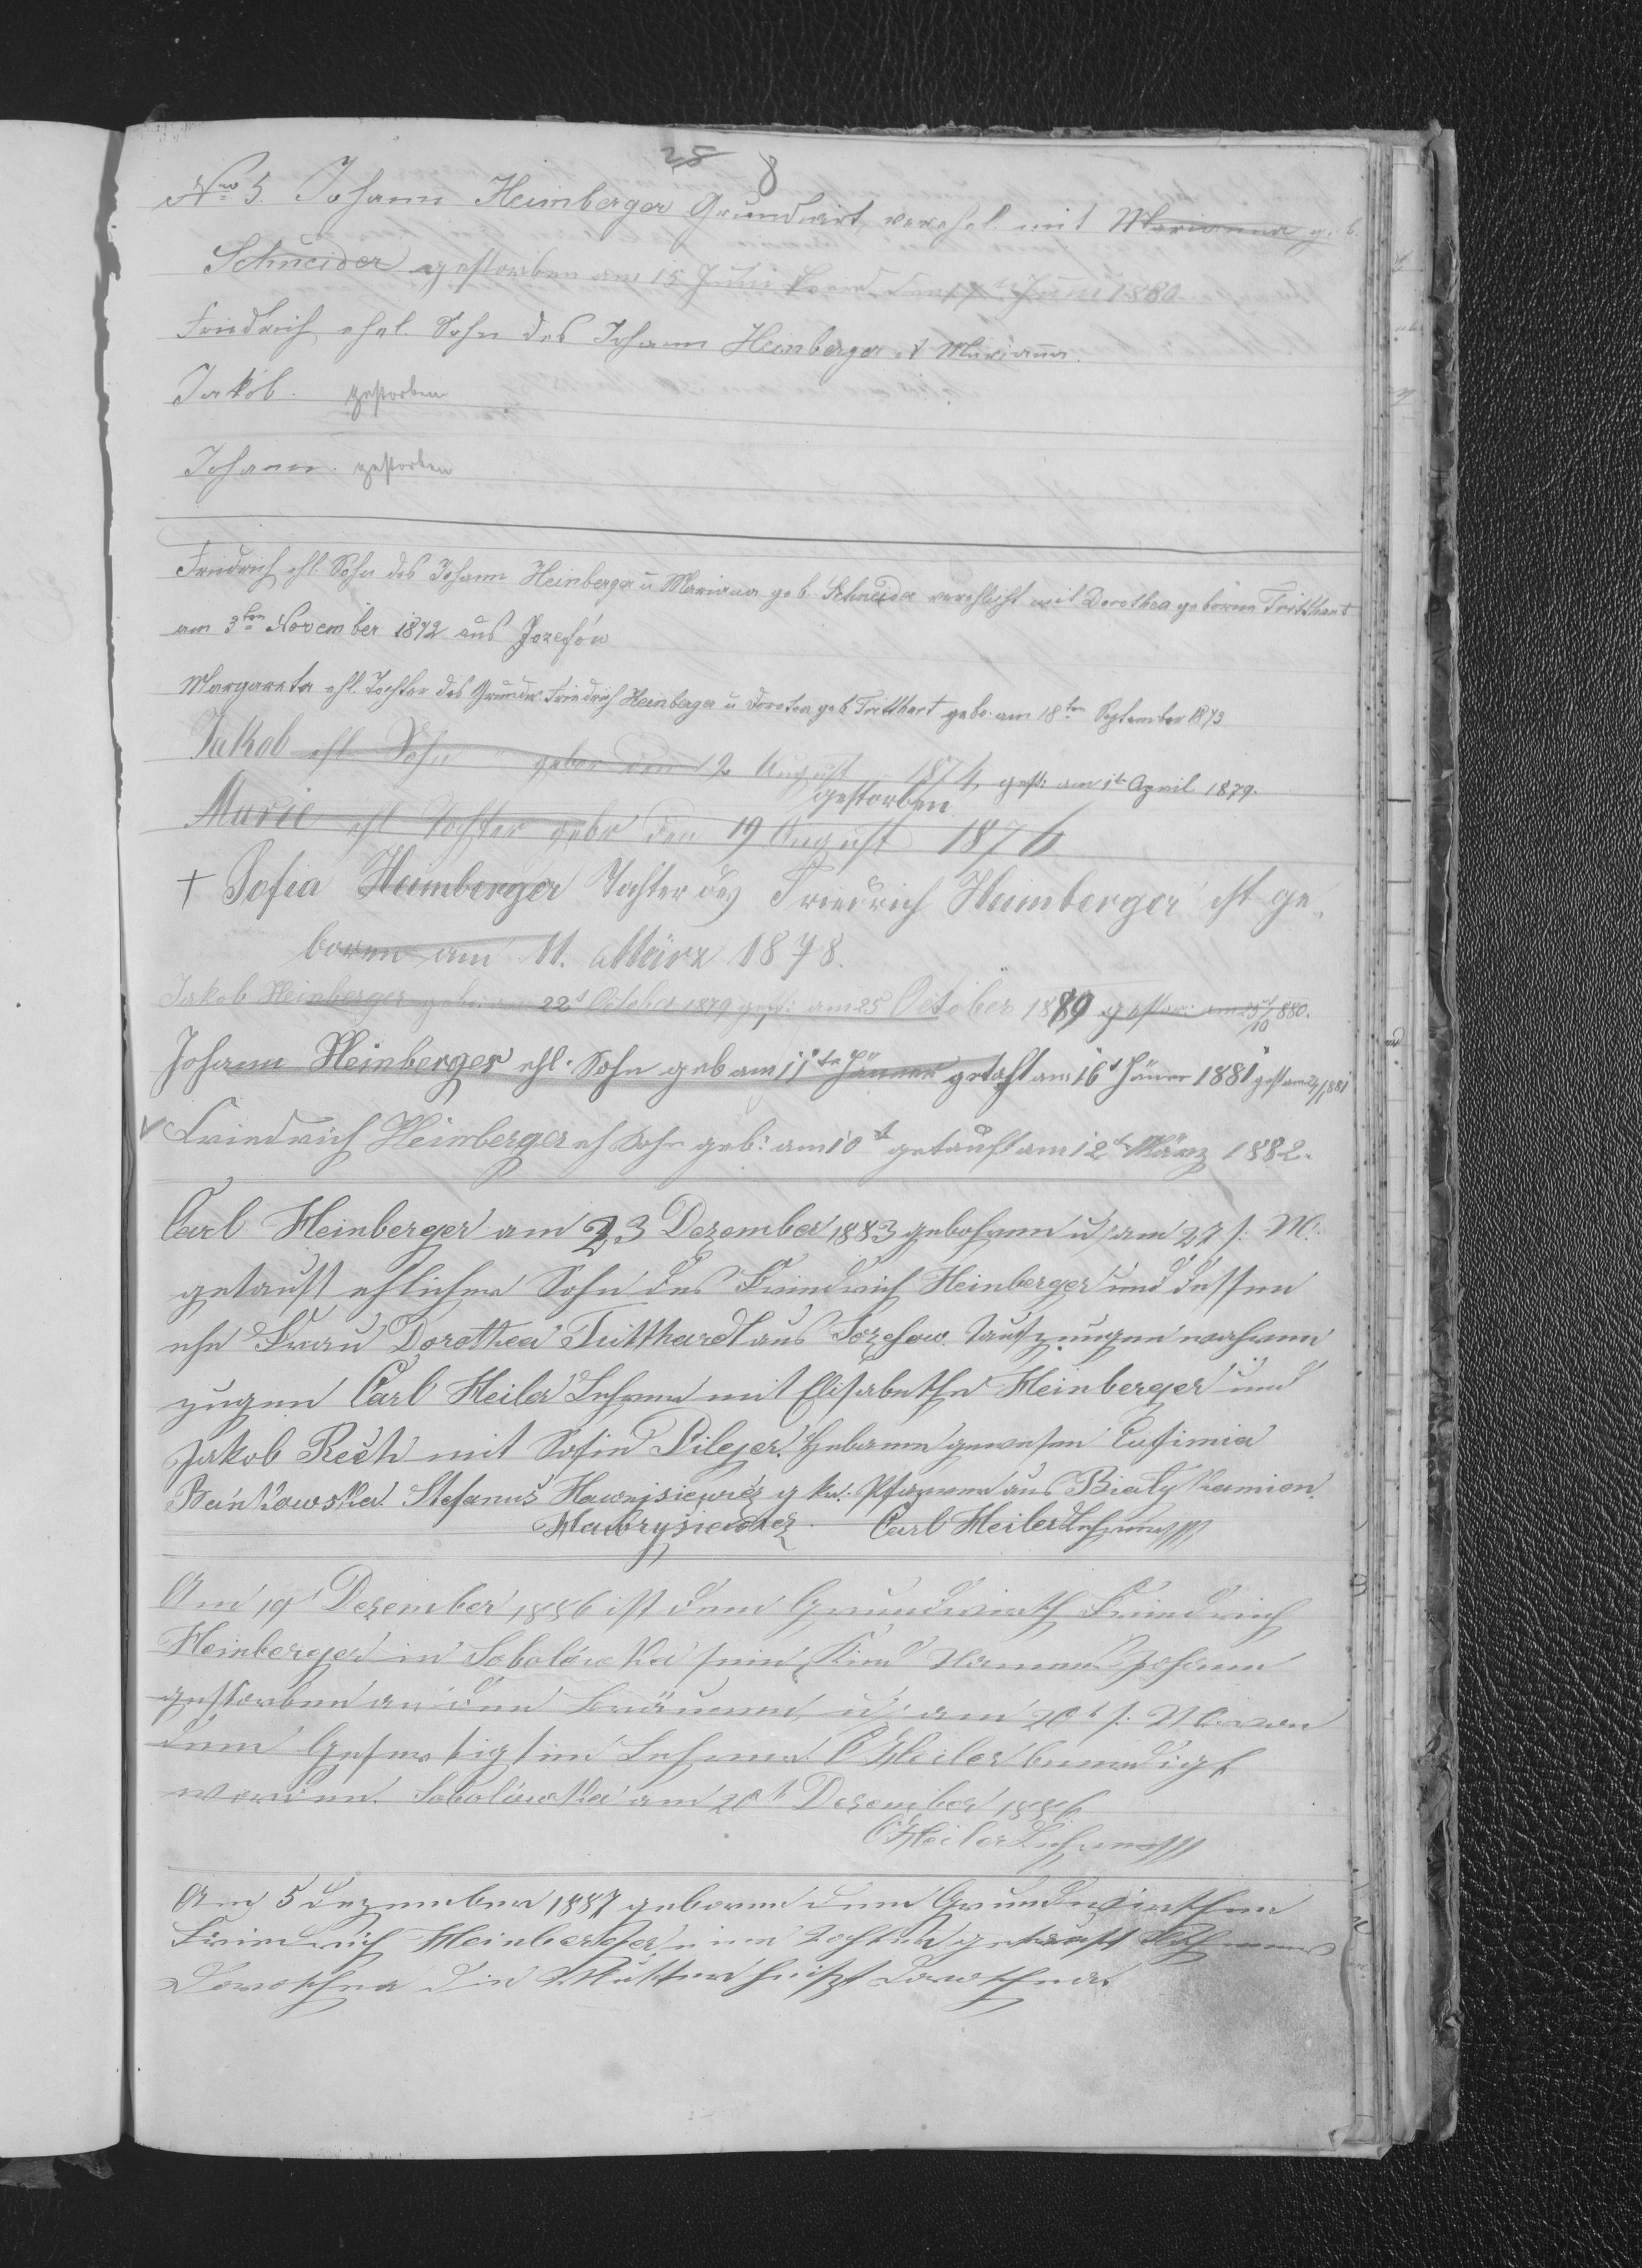 28 8
Nro 5. Johann Heimberger Grundwirt, verehel. mit Marianna geb.
Schneider gestorben am 15 Juni beerd. den 17ten Juni 1880
Friedrich ehel. Sohn des Johann Heinberger et Marianna.
Jakob. gestorben
Johann. gestorben
Friedrich ehl. Sohn des Johann Heinberger u Mariana geb. Schneider verehlicht mit Dorothea geborne Tritthart
am 3ten November 1872 aus Jozefów
Margareta ehl. Tochter des Grundw. Friedrich Heinberger u Dorotea geb Tritthart gebo: am 18ten September 1873
Jakob ehl Sohn gebor den 12 August 1874, gest: am 1t April 1879.
gestorben
Marie ehl Tochter gebr den 19 August 1876
+ Sofia Heimberger Tochter des Friedrich Heimberger ist ge,
boren am 11. März 1878.
Jakob Heinberger gebo: am 22t October 1879 get: am 25 October 1889 gestor: am 25t/10 880.
Johann Heinberger ehl. Sohn geb am 11te Jänner getaft am 16t Jäner 1881 gest am 2/1881
v Friedrich Heimberger eh Sohn geb: am 10t getauft am 12t März 1882.
Carl Heinberger am 23 Dezember 1883 gebohren u. am 27 s. M.
getauft ehlicher Sohn des Friedrich Heinberger und dessen
ehe Frau Dorothea Tritthardt aus Jozefow. Taufzeugen wahren
zugen Carl Heiler Lehrer mit Elisabetha Heinberger und
Jakob Rech mit Sofie Pilger. Hebame gewesen
Bańkowska. Stefanus Hawrysiewicz g. k. Pfarrer aus Biały Kamien.
Hawrysiewicz Carl Heiler Lehrer
Am 19t Dezember 1886 ist dem Grundwirth Friedrich
Heinberger in Sobolówka sein Kind Namens Johann
gestorben an den u. am 20t s. M. von
dem Gefertigten Lehrer C Heiler beerdigt
worden. Sobolówka am 20t Dezember 1886
C Heiler Lehrer
Am 5 Dezember 1887 geboren dem Grundwirthen
Friedrich Heinberger eine Tochter getauft Nahmens
Dorothea die Mutter heißt Dorothea